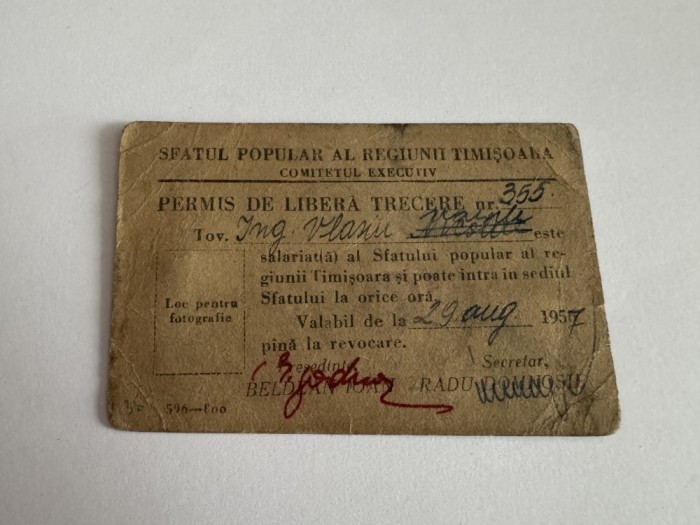 SFATUL POPULAR AL REGIUNII TIMIȘOARA
COMITETUL EXECUTIV
PERMIS DE LIBERĂ TRECERE nr. 355
Tov. Ing Vlasiu este
salariat(ă) al Sfatului popular al re-
giunii Timișoara și poate intra în sediul
Sfatului la orice oră.
Loc pentru
fotografie
Valabil de la 29 aug 1957
pînă la revocare.
Președinte
Secretar,
BELDEAN IOAN
RADU
596—800